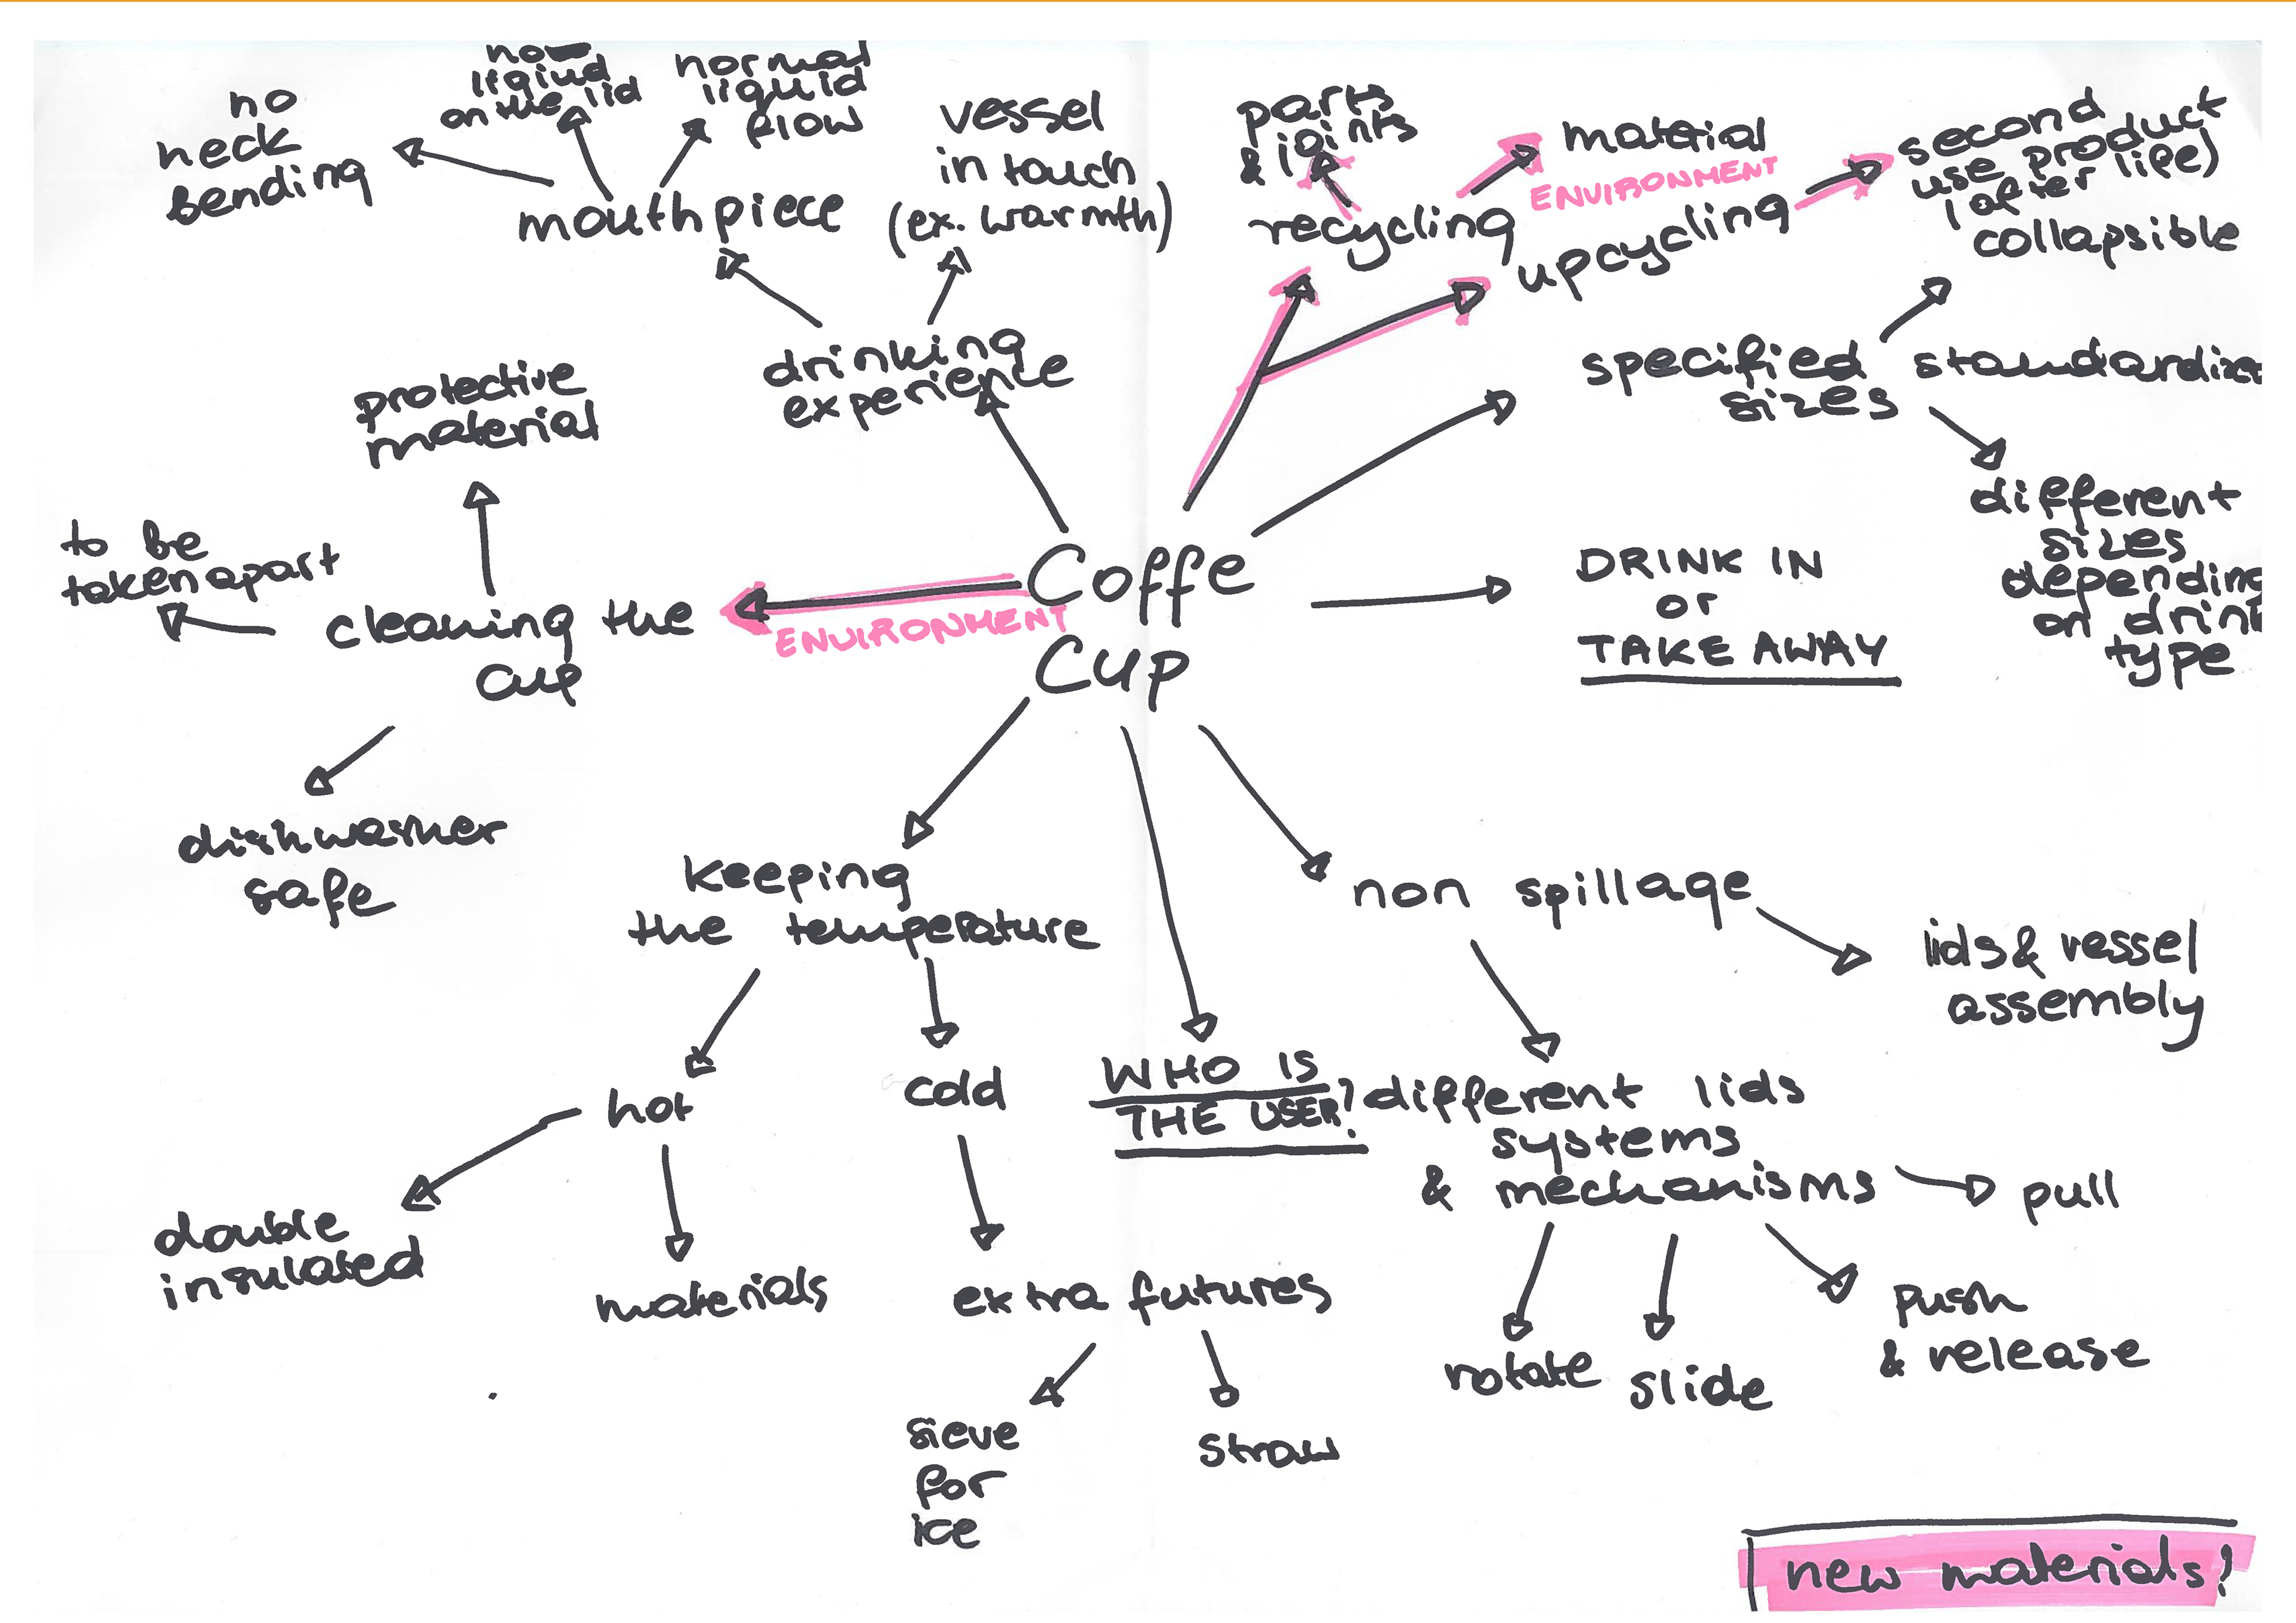 no
neck
bending
no
liqiud
on the lid
normal
liquid
flow
mouthpiece
vessel
in touch
(ex. warmth)
drinking
experience
parts
& joints
recycling
material
ENVIRONMENT
upcycling
second
use product
(after life)
collapsible
specified
sizes
standardize
different
sizes
depending
on drink
type
protective
material
to be
taken apart
cleaning the
cup
dishwasher
safe
ENVIRONMENT
Coffe
Cup
DRINK IN
or
TAKE AWAY
keeping
the temperature
hot
cold
double
insulated
materials
extra futures
sieve
for
ice
straw
WHO IS
THE USER?
non spillage
lids & vessel
assembly
different lids
systems
& mechanisms
pull
push
& release
rotate
slide
new materials?